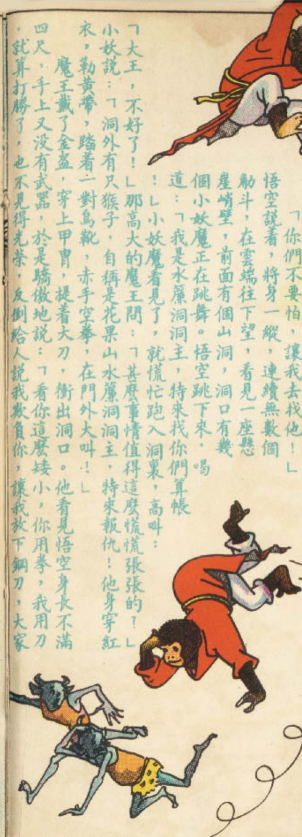 「你們不要怕，讓我去找他！」
悟空說着，將身一縱，連續無數個
觔斗，在雲端往下望，看見一座懸
崖峭壁，前面有個山洞，洞口有幾
個小妖魔正在跳舞。悟空跳下來，喝
道：「我是水簾洞洞主，特來找你們算帳
！」小妖魔看見了，就慌忙跑入洞裏，高叫：
「大王，不好了！」那高大的魔王問：「甚麼事情值得這麼慌慌張張的？」
小妖說：「洞外有只猴子，自稱是花果山水簾洞洞主，特來報仇！他身穿紅
衣，勒黃帶，踏着一對烏靴，赤手空拳，在門外大叫！」
魔王戴了金盔，穿上甲冑，提着大刀，衝出洞口。他看見悟空身長不滿
四尺，手上又没有武器，於是驕傲地説：「看你這麼矮小，你用拳，我用刀
，就算打勝了，也不見得光榮，反倒給人説我欺負你，讓我放下鋼刀，大家